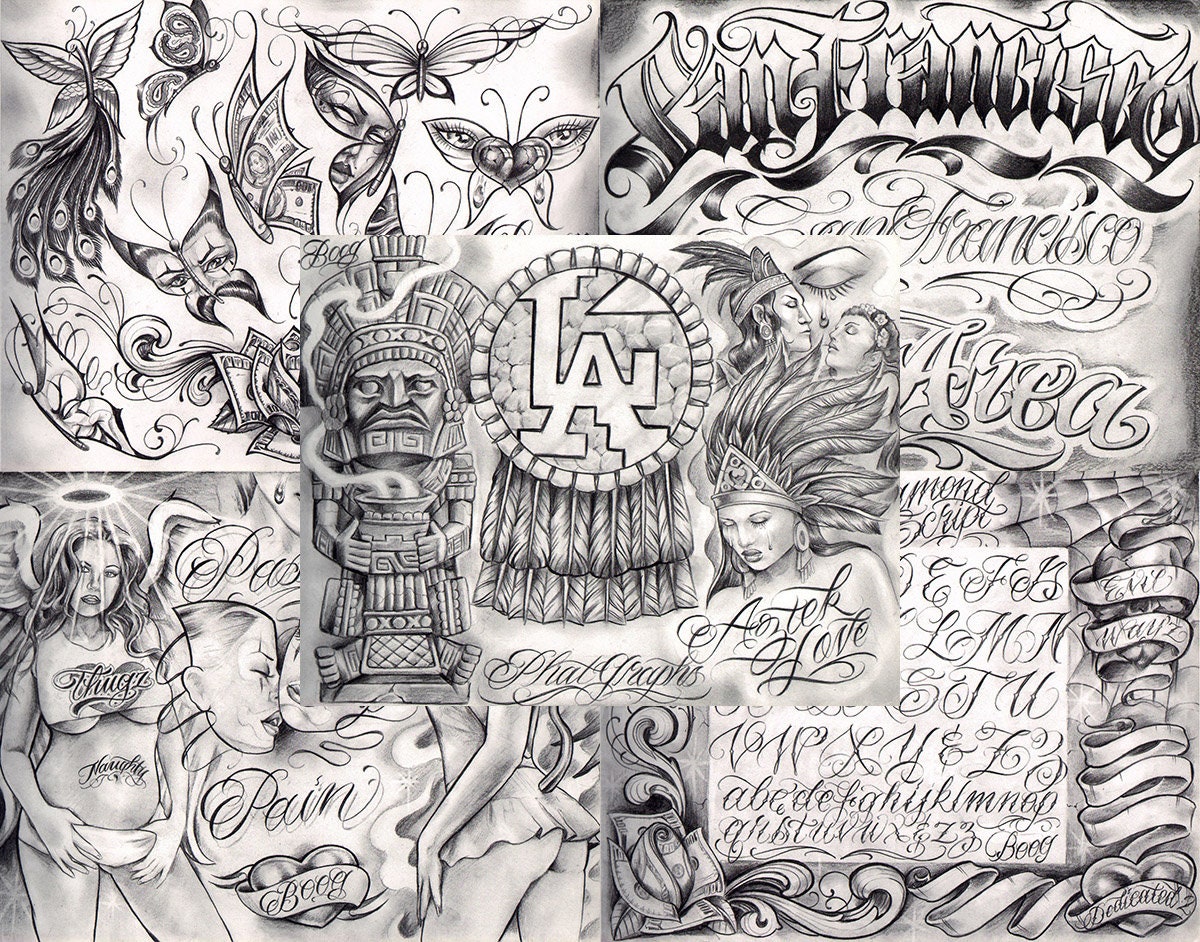 San Francisco
San Francisco
Area
Boog
LA
Aztek
Love
Phat Graphs
Script
Thugz
Naughty
Pain
Boog
E F G
L M N
S T U
V W X Y & Z
abcdefghijklmnop
qrstuvwxyz
Boog
Evil
Wayz
Dedicated
100